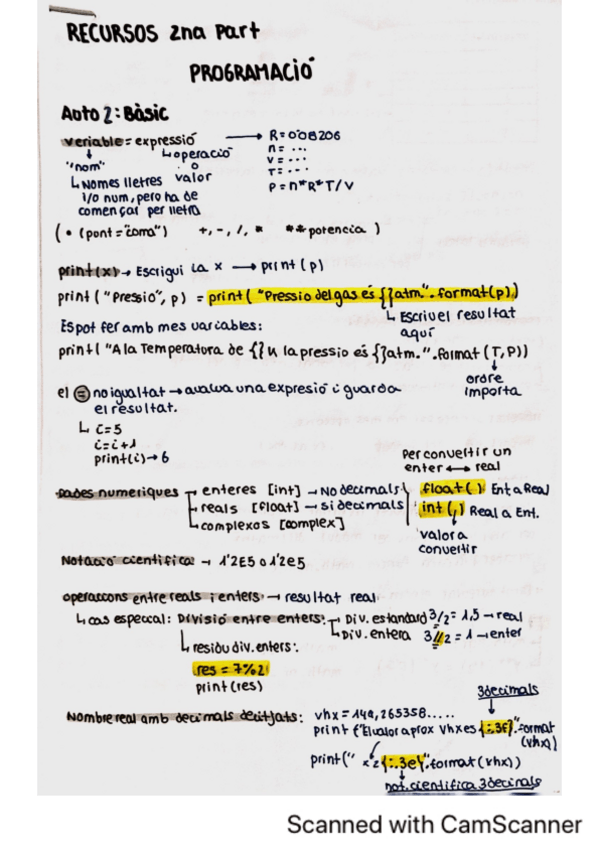 RECURSOS 2na Part
PROGRAMACIÓ
Auto 2: Bàsic
variable = expressió → R=0'08206
"nom" ↳operació n = ...
o V = ...
↳ Nomes lletres valor T = ...
i/o num, pero ha de P = n*R*T/V
començar per lletra
( • (punt = "coma") +, -, /, * ** potencia )
print(x) → Escrigui la x → print (p)
print ("Pressio", p) = print( "Pressio del gas és {} atm.".format(p))
↳ Escriu el resultat
aquí
Es pot fer amb mes variables:
print( "A la Temperatura de {} K la pressio és {} atm.".format (T,P))
ordre
importa
el = no igualtat → avalua una expresió i guarda
el resultat.
↳ i=5
i=i+1
print(i) → 6
Per convertir un
enter ↔ real
Dades numeriques enteres [int] → No decimals float( ) Ent a Real
reals [float] → si decimals int( ) Real a Ent.
complexos [complex]
valor a
convertir
Notació cientifica → 1'2E5 o 1'2e5
operacions entre reals i enters → resultat real
↳ cas especial: Divisió entre enters: Div. estandard 3/2 = 1,5 → real
Div. entera 3//2 = 1 → enter
↳ residu div. enters:
res = 7%2
print(res)
3 decimals
Nombre real amb decimals desitjats: vhx = 144,265358.....
print ("El valor aprox vhx es {:.3f}".format
(vhx))
print(" {:.3e}".format(vhx))
not. cientifica 3 decimals
Scanned with CamScanner